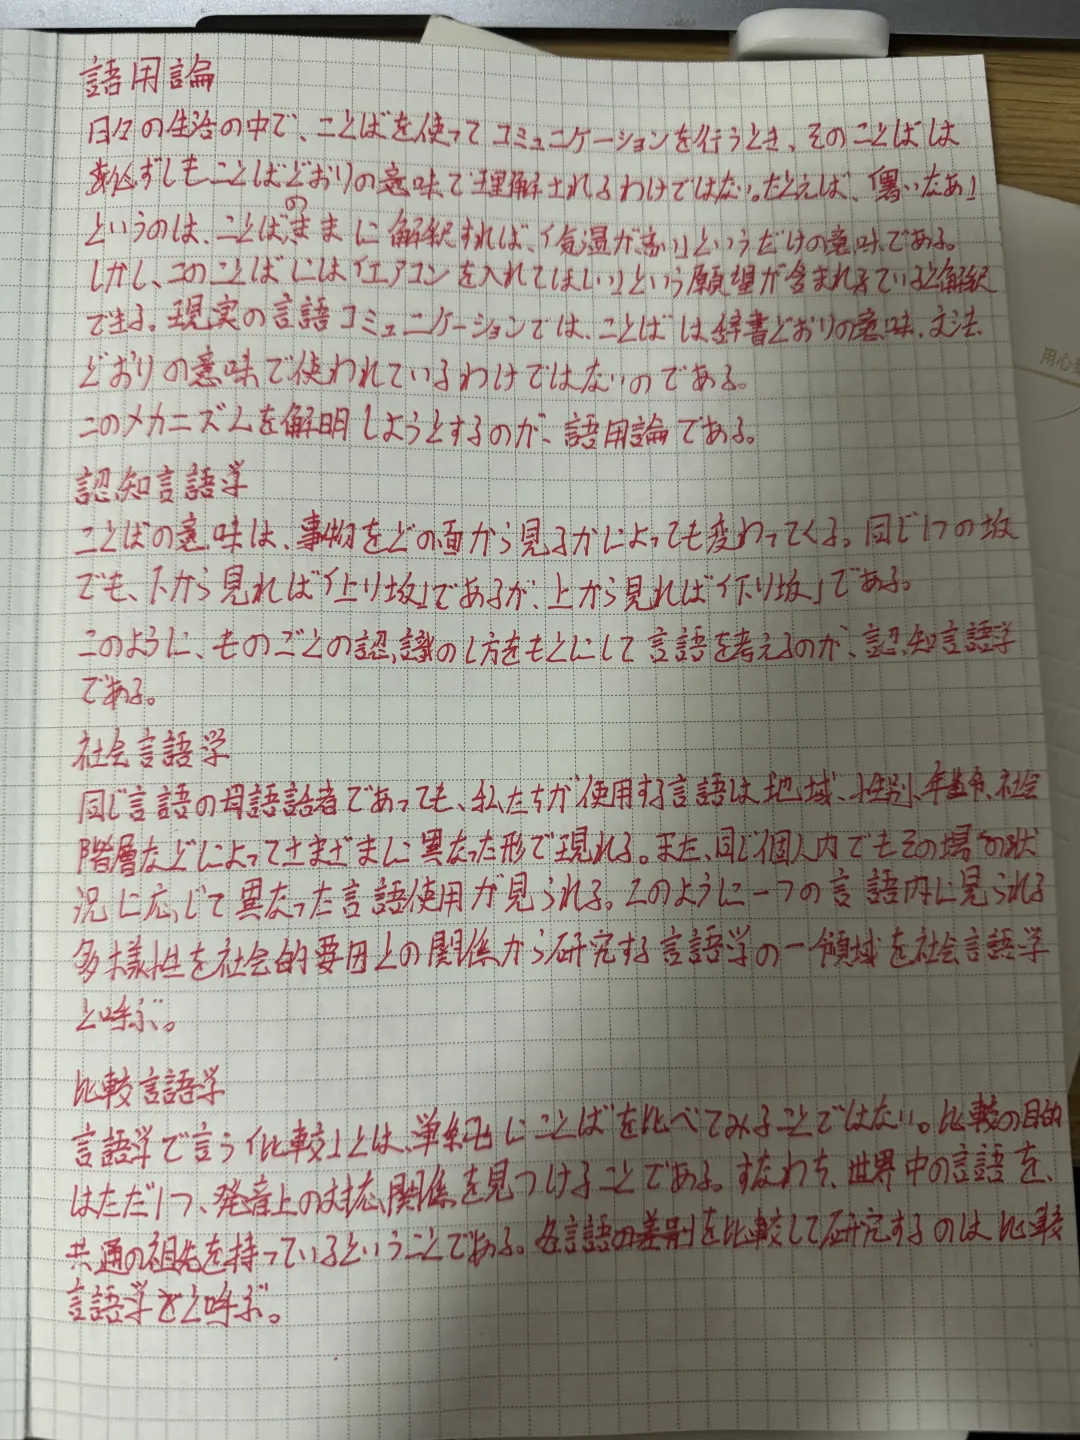 語用論
日々の生活の中で、ことばを使ってコミュニケーションを行うとき、そのことばは
必ずしもことばどおりの意味で理解されるわけではない。たとえば、「暑いなあ」
というのは、ことばのままに解釈すれば、「気温が高い」というだけの意味である。
しかし、このことばには「エアコンを入れてほしい」という願望が含まれていると解釈
できる。現実の言語コミュニケーションでは、ことばは辞書どおりの意味、文法
どおりの意味で使われているわけではないのである。
このメカニズムを解明しようとするのが、語用論である。
認知言語学
ことばの意味は、事物をどの面から見るかによっても変わってくる。同じ1つの坂
でも、下から見れば「上り坂」であるが、上から見れば「下り坂」である。
このように、ものごとの認識のし方をもとにして言語を考えるのが、認知言語学
である。
社会言語学
同じ言語の母語話者であっても、私たちが使用する言語は地域、性別、年齢、社会
階層などによってさまざまに異なった形で現れる。また、同じ個人内でもその場の状
況に応じて異なった言語使用が見られる。このように一つの言語内に見られる
多様性を社会的要因との関係から研究する言語学の一領域を社会言語学
と呼ぶ。
比較言語学
言語学で言う「比較」とは、単純にことばを比べてみることではない。比較の目的
はただ1つ、発音上の対応関係を見つけることである。すなわち、世界中の言語を、
共通の祖先を持っているということである。各言語の差別を比較して研究するのは比較
言語学と呼ぶ。
用心